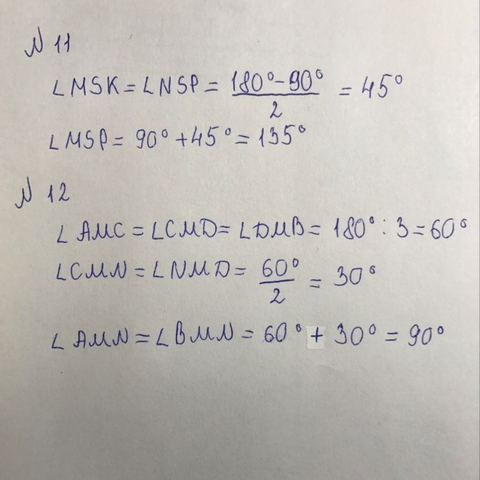 N 11
∠MSK = ∠NSP = (180° - 90°)/2 = 45°
∠MSP = 90° + 45° = 135°
N 12
∠AMC = ∠CMD = ∠DMB = 180° : 3 = 60°
∠CMN = ∠NMD = 60°/2 = 30°
∠AMN = ∠BMN = 60° + 30° = 90°